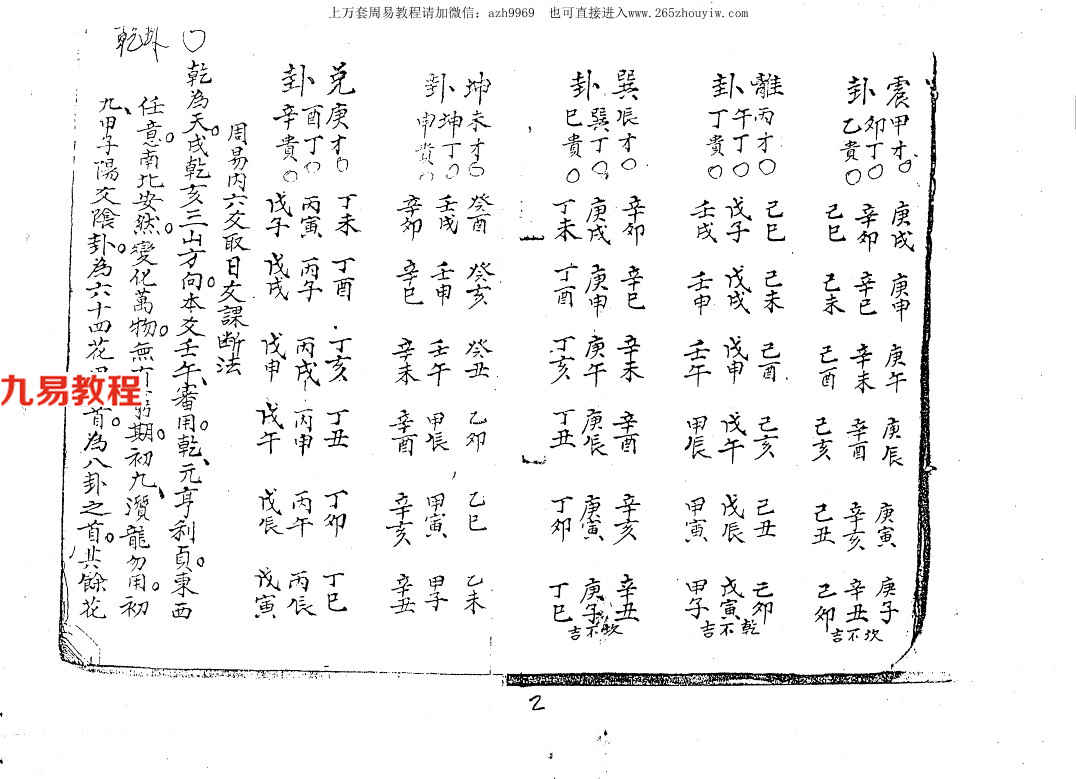 上万套周易教程请加微信：azh9969　也可直接进入www.265zhouyiw.com
震卦
甲才○
卯丁○
乙貴○
庚戌 庚申 庚午 庚辰 庚寅 庚子
辛卯 辛巳 辛未 辛酉 辛亥 辛丑
己巳 己未 己酉 己亥 己丑 己卯
坎不吉
離卦
丙才○
午丁○
丁貴○
己巳 己未 己酉 己亥 己丑 己卯
戊子 戊戌 戊申 戊午 戊辰 戊寅
壬戌 壬申 壬午 甲辰 甲寅 甲子
乾不吉
巽卦
辰才○
巽丁○
巳貴○
辛卯 辛巳 辛未 辛酉 辛亥 辛丑
庚戌 庚申 庚午 庚辰 庚寅 庚子
丁未 丁酉 丁亥 丁丑 丁卯 丁巳
坎不吉
坤卦
未才○
坤丁○
申貴○
癸酉 癸亥 癸丑 乙卯 乙巳 乙未
壬戌 壬申 壬午 甲辰 甲寅 甲子
辛卯 辛巳 辛未 辛酉 辛亥 辛丑
兌卦
庚才○
酉丁○
辛貴○
丁未 丁酉 丁亥 丁丑 丁卯 丁巳
丙寅 丙子 丙戌 丙申 丙午 丙辰
戊子 戊戌 戊申 戊午 戊辰 戊寅
周易内六爻取日爻課断法
○乾為天戌乾亥三山方向本爻壬午、審用乾、元亨利貞。東西
任意南北安然。變化萬物。無有窮期。初九、潛龍勿用。初
九、甲子陽爻陰卦。為六十四花首。為八卦之首。其餘花
乾卦
九易教程
2